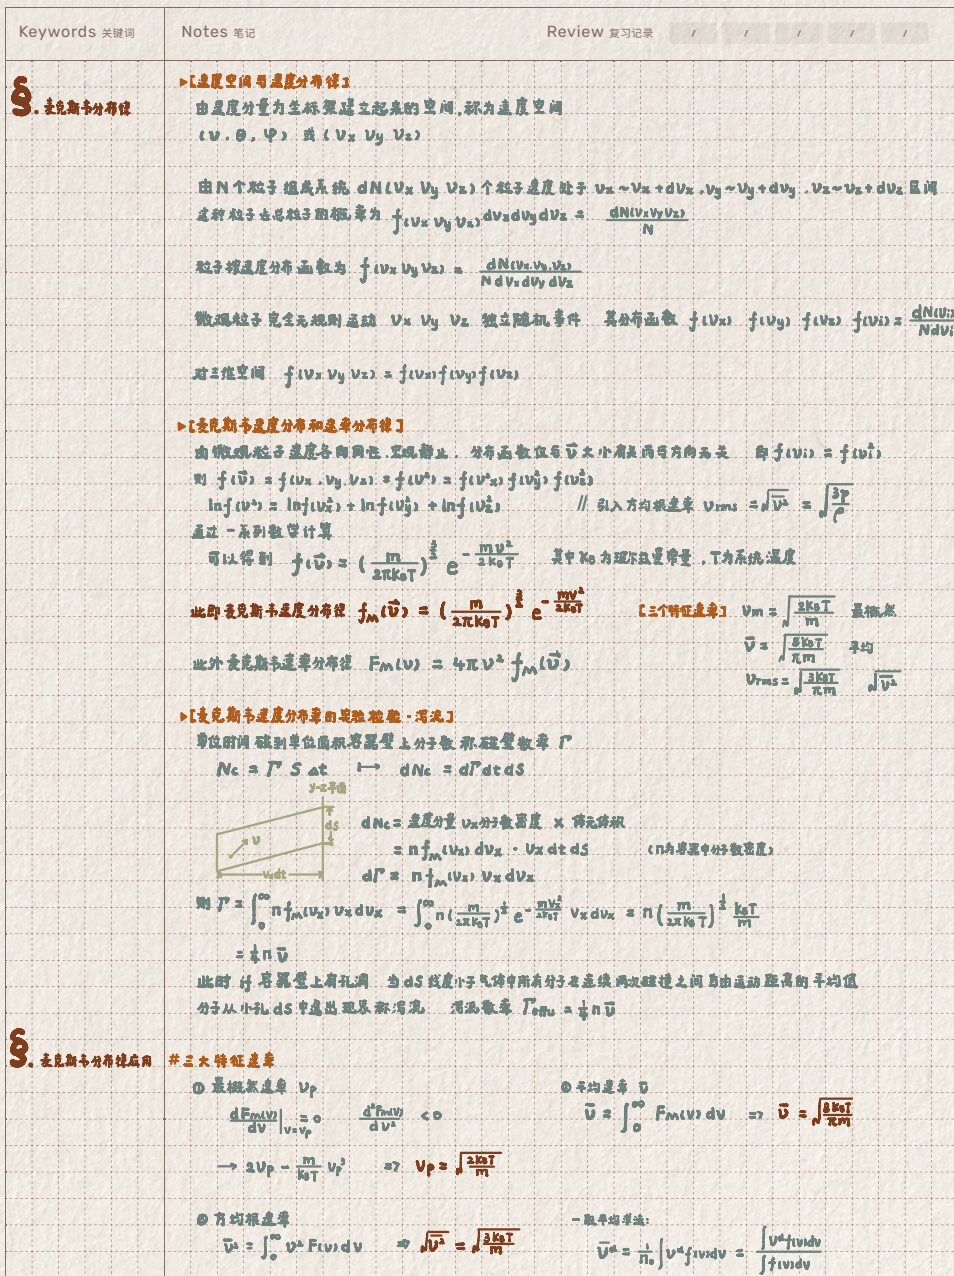 Keywords 关键词
Notes 笔记
Review 复习记录 / / / / /
§. 麦克斯韦分布律
▸[速度空间与速度分布律]
由速度分量为坐标架建立起来的空间,称为速度空间
(v . θ, φ) 或 (vx vy vz)
由N个粒子组成系统 dN(vx vy vz)个粒子速度处于 vx~vx+dvx ,vy~vy+dvy .vz~vz+dvz 区间
这种粒子占总粒子的概率为 f(vx vy vz)dvxdvydvz = dN(vxvyvz)/N
粒子按速度分布函数为 f(vx vy vz) = dN(vx.vy.vz)/(N dvx dvy dvz)
微观粒子完全无规则运动 vx vy vz 独立随机事件 其分布函数 f(vx) f(vy) f(vz) f(vi)= dN(vi)/Ndvi
对三维空间 f(vx vy vz) = f(vx)f(vy)f(vz)
▸[麦克斯韦速度分布和速率分布律]
由微观粒子速度各向同性.宏观静止. 分布函数仅与v⃗大小有关而与方向无关 即 f(vi) = f(vi²)
则 f(v⃗) = f(vx .vy.vz) = f(v²) = f(vx²)f(vy²)f(vz²)
lnf(v²) = lnf(vx²) + lnf(vy²) + lnf(vz²) // 引入方均根速率 vrms = √(v̄²) = √(3p/ρ)
通过一系列数学计算
可以得到 f(v⃗) = (m/2πkBT)^(3/2) e^(-mv²/2kBT) 其中kB为玻尔兹曼常量,T为系统温度
此即麦克斯韦速度分布律 fM(v⃗) = (m/2πkBT)^(3/2) e^(-mv²/2kBT) [三个特征速率] vm = √(2kBT/m) 最概然
v̄ = √(8kBT/πm) 平均
此外麦克斯韦速率分布律 FM(v) = 4πv² fM(v⃗)
vrms = √(3kBT/πm) √(v̄²)
▸[麦克斯韦速度分布率的实验检验·泻流]
单位时间碰到单位面积容器壁上分子数称碰壁数率 Γ
Nc = Γ S Δt ↦ dNc = dΓdtdS
y-z平面
dS
v
vxdt
dNc= 速度分量vx分子数密度 × 体元体积
= nfM(vx)dvx · vxdtdS (n为容器中分子数密度)
dΓ = nfM(vx) vxdvx
则 Γ = ∫₀^∞ nfM(vx)vxdvx = ∫₀^∞ n(m/2πkBT)^(1/2) e^(-mvx²/2kBT) vxdvx = n(m/2πkBT)^(1/2) kBT/m
= ¼nv̄
此时 if 容器壁上有孔洞 当dS线度小于气体中所有分子在连续两次碰撞之间自由运动距离的平均值
分子从小孔dS中逸出现象称泻流 泻流数率 Γeffu = ¼nv̄
§. 麦克斯韦分布律应用
#三大特征速率
① 最概然速率 vp
dFM(v)/dv |v=vp = 0 d²FM(v)/dv² <0
→ 2vp - m/kBT vp³ => vp = √(2kBT/m)
② 平均速率 v̄
v̄ = ∫₀^∞ FM(v)dv => v̄ = √(8kBT/πm)
③ 方均根速率
v̄² = ∫₀^∞ v² F(v)dv => √(v̄²) = √(3kBT/m)
一般平均求法:
v̄^α = 1/n₀ ∫v^α f(v)dv = ∫v^αf(v)dv / ∫f(v)dv